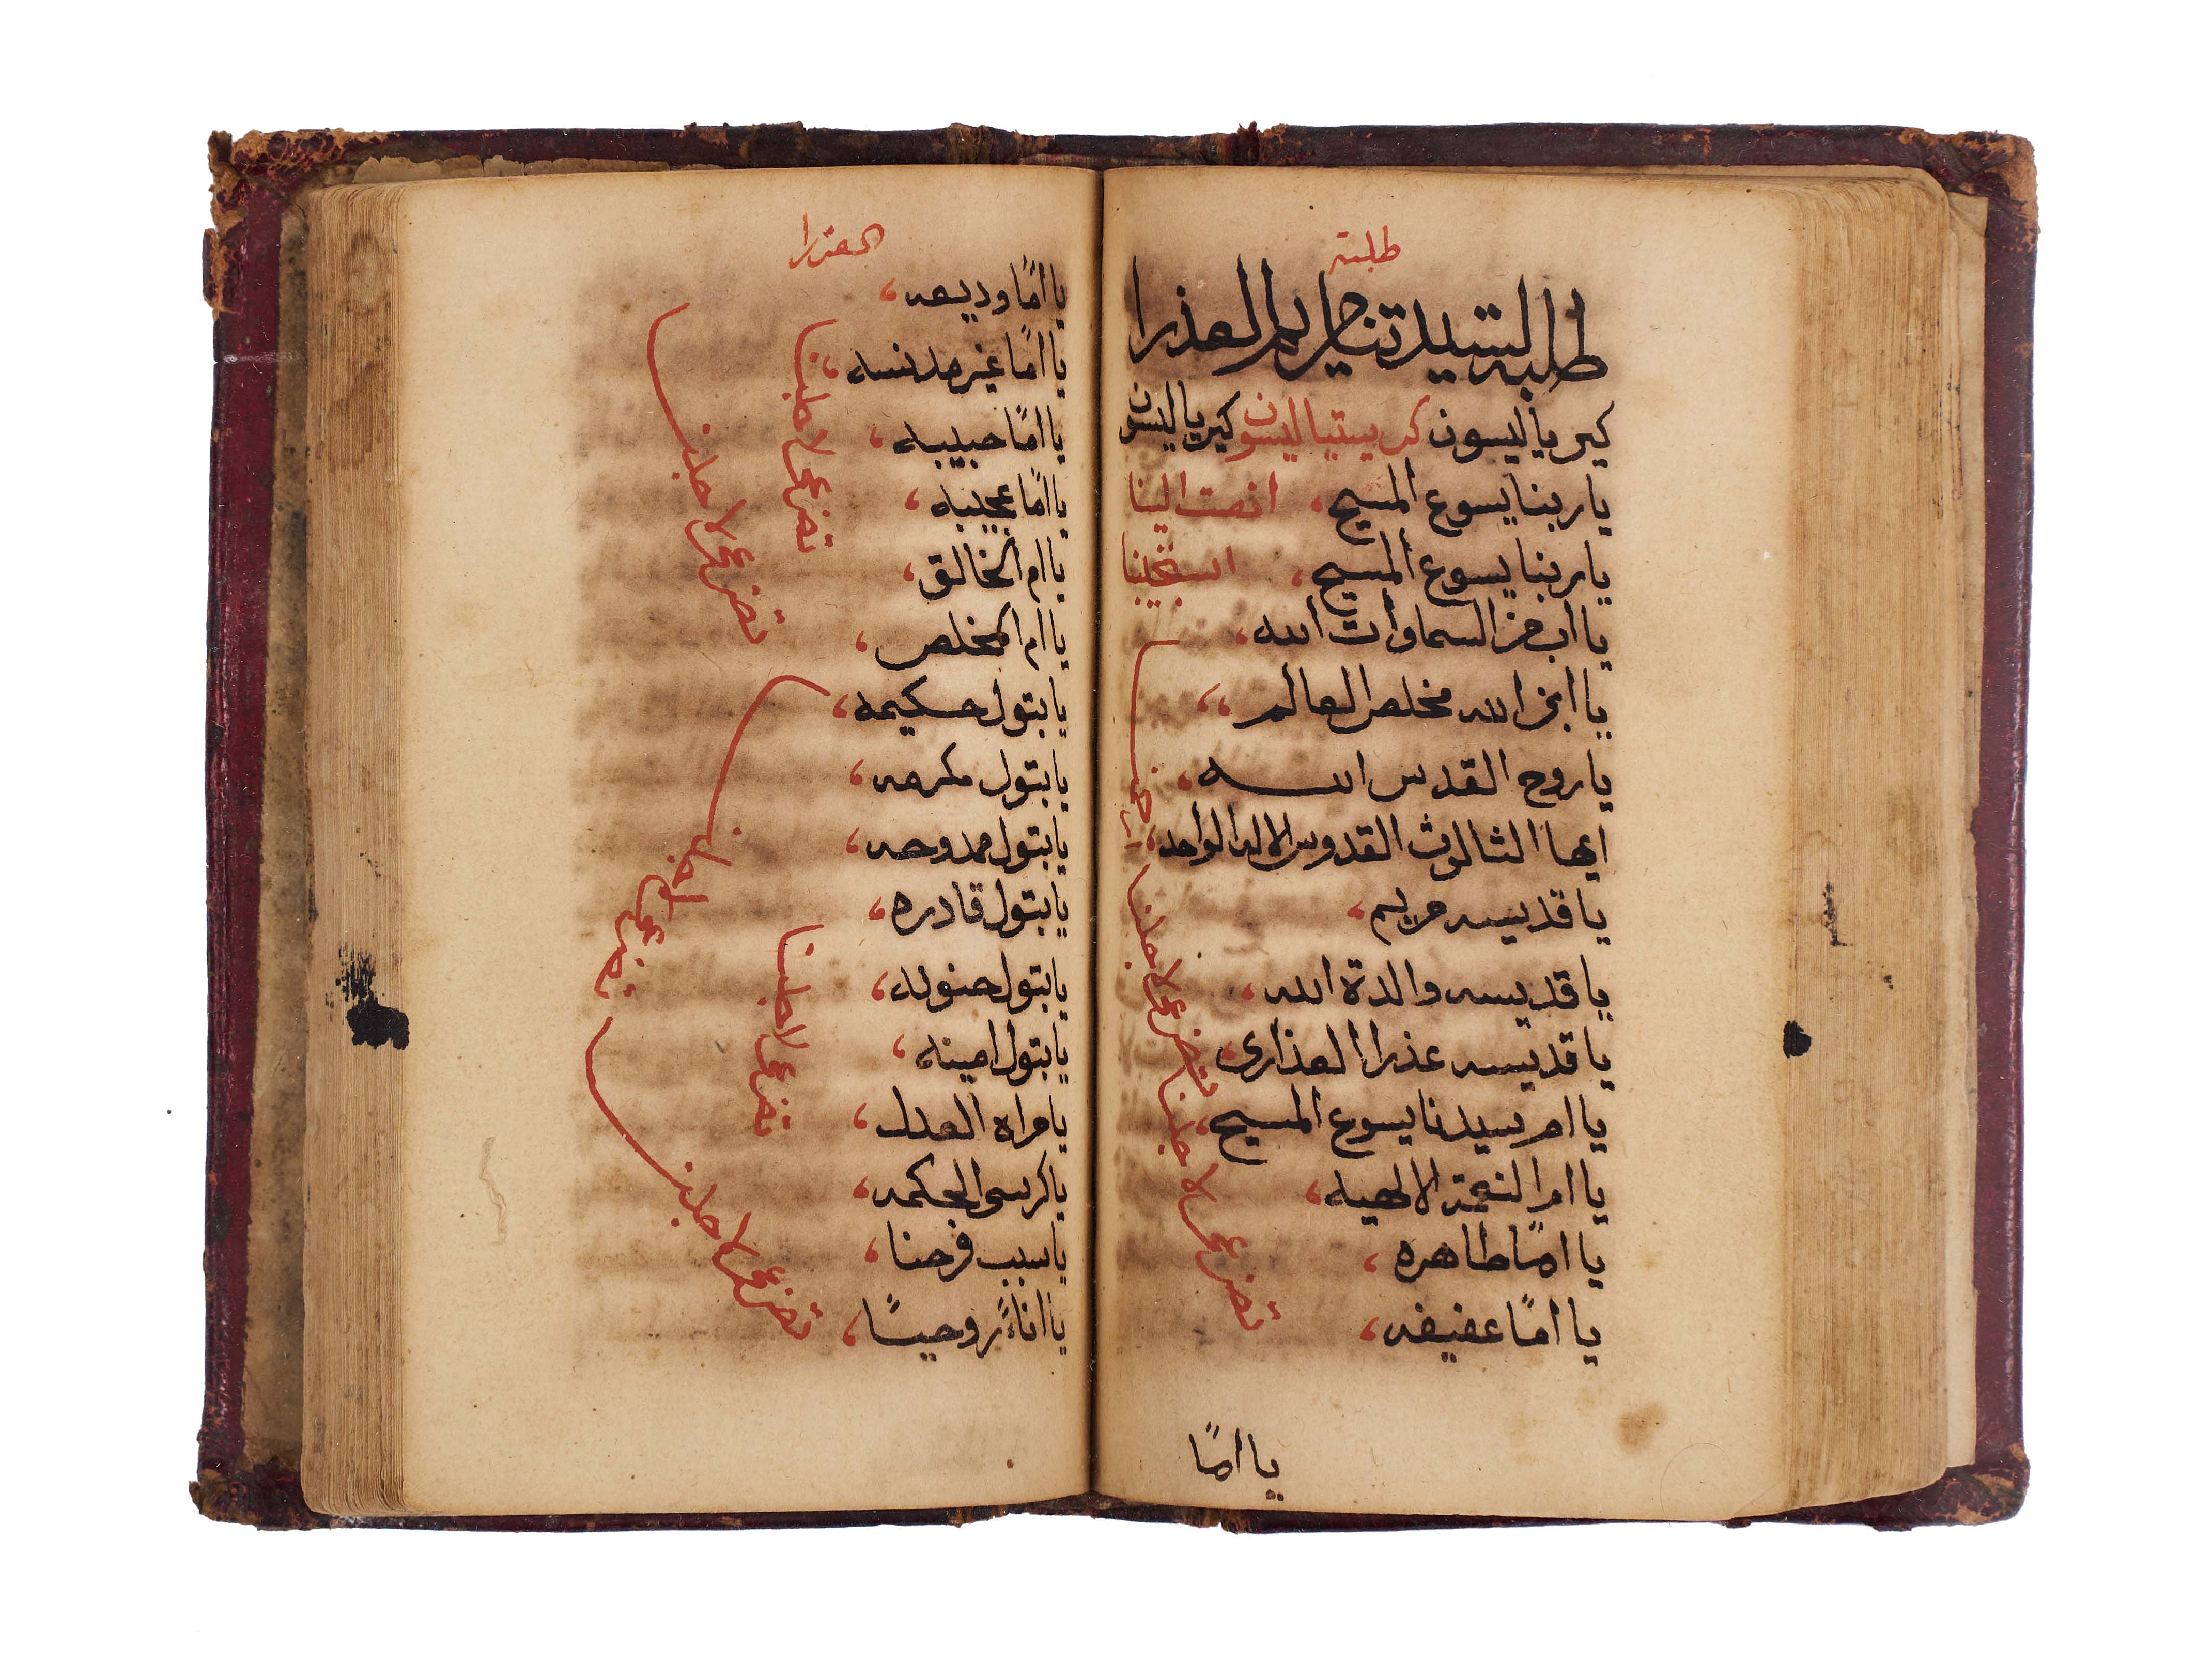 طلبة
طلبة السيدتنا مريم العذرا
كيريا ليسون كريستيا ليسون كيريا ليسون
يا ربنا يسوع المسيح، انصت الينا
يا ربنا يسوع المسيح، استجيبنا
يا اب من السماوات الله،
يا ابن الله مخلص العالم،،
يا روح القدس الله،
ايها الثالوث القدوس الاله الواحد،
ارحمنا
يا قديسه مريم،
يا قديسه والدة الله،
يا قديسه عذرا العذارى
تضرعى لاجلنا
يا ام سيدنا يسوع المسيح،
يا ام النعمة الالهيه،
يا امًا طاهره،
يا امًا عفيفه،
تضرعى لاجلنا
يا امًا
العذرا
يا امًا وديعه،
يا امًا غير مدنسه،
يا امًا حبيبه،
يا امًا عجيبه،
تضرعى لاجلنا
يا ام الخالق،
يا ام المخلص،
تضرعى لاجلنا
يا بتول حكيمه،
يا بتول مكرمه،
يا بتول ممدوحه،
يا بتول قادره،
تضرعى لاجلنا
يا بتول حنونه،
يا بتول امينه،
يا مراة العدل،
تضرعى لاجلنا
يا كرسى الحكمه،
يا سبب فرحنا،
يا اناءً روحيًا،
تضرعى لاجلنا